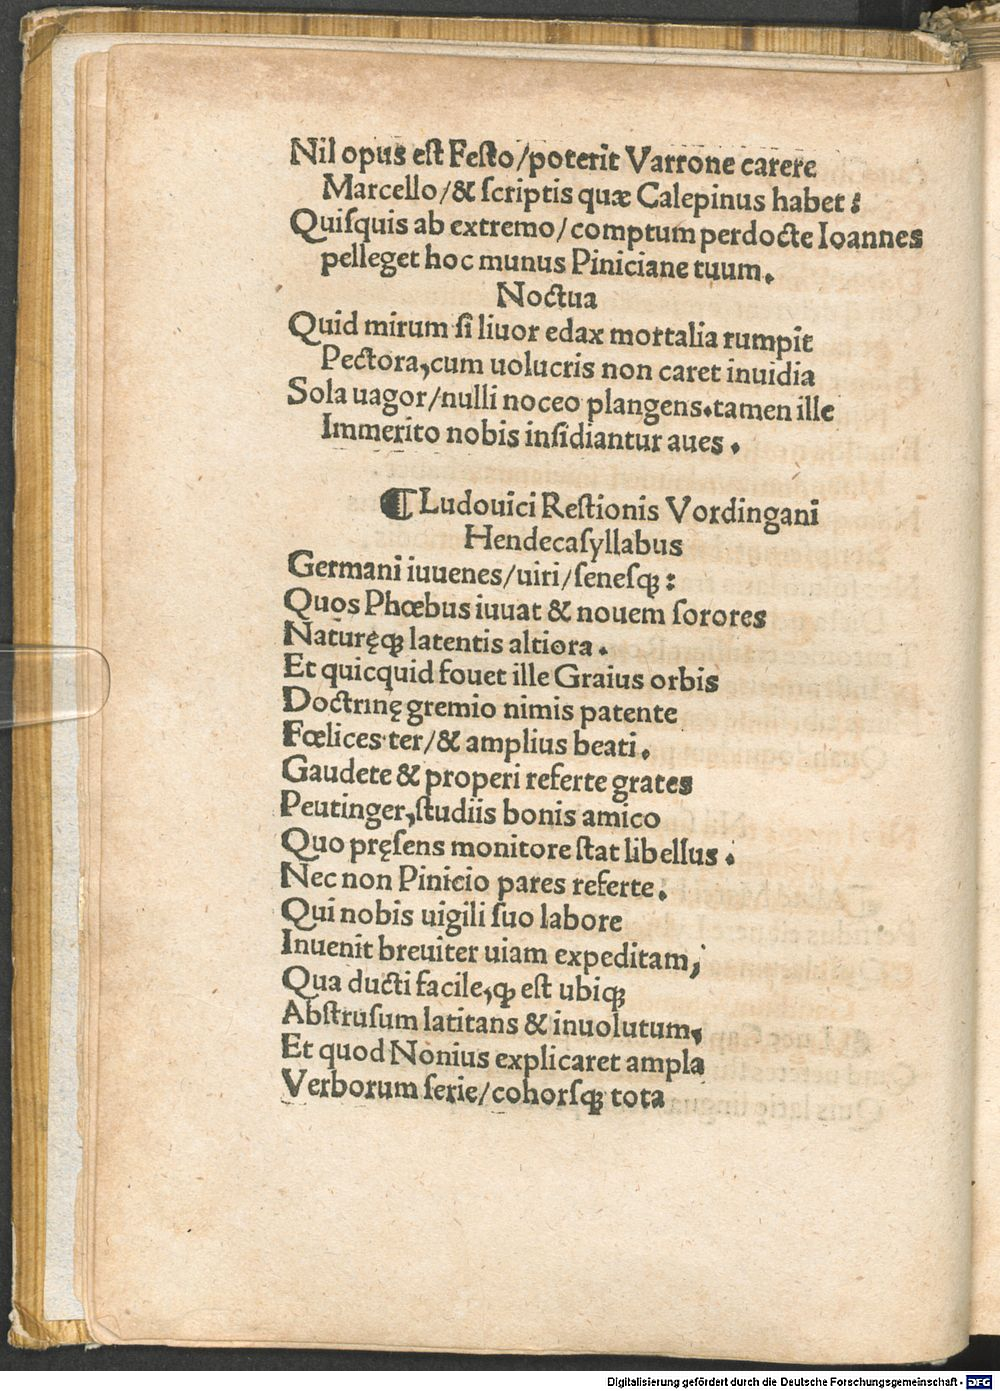 Nil opus est Festo/poterit Varrone carere
Marcello/& ſcriptis quæ Calepinus habet:
Quiſquis ab extremo/comptum perdocte Ioannes
pelleget hoc munus Piniciane tuum.
Noctua
Quid mirum ſi liuor edax mortalia rumpit
Pectora,cum uolucris non caret inuidia
Sola uagor/nulli noceo plangens.tamen ille
Immerito nobis inſidiantur aues.
¶Ludouici Reſtionis Vordingani
Hendecaſyllabus
Germani iuuenes/uiri/ſeneſꝗ:
Quos Phœbus iuuat & nouem ſorores
Naturęꝗ latentis altiora.
Et quicquid fouet ille Graius orbis
Doctrinę gremio nimis patente
Fœlices ter/& amplius beati.
Gaudete & properi referte grates
Peutinger,ſtudiis bonis amico
Quo pręſens monitore ſtat libellus.
Nec non Pinicio pares referte.
Qui nobis uigili ſuo labore
Inuenit breuiter uiam expeditam,
Qua ducti facile,ꝙ est ubiꝗ
Abſtruſum latitans & inuolutum,
Et quod Nonius explicaret ampla
Verborum ſerie/cohorſꝗ tota
Digitalisierung gefördert durch die Deutsche Forschungsgemeinschaft - DFG